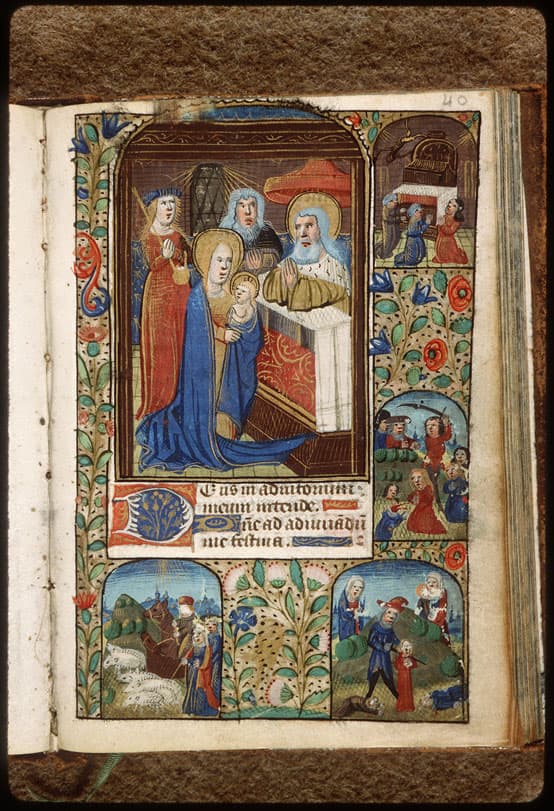 40
Deus in adiutorium
meum intende.
Dñe ad adiuuadu
me festina.